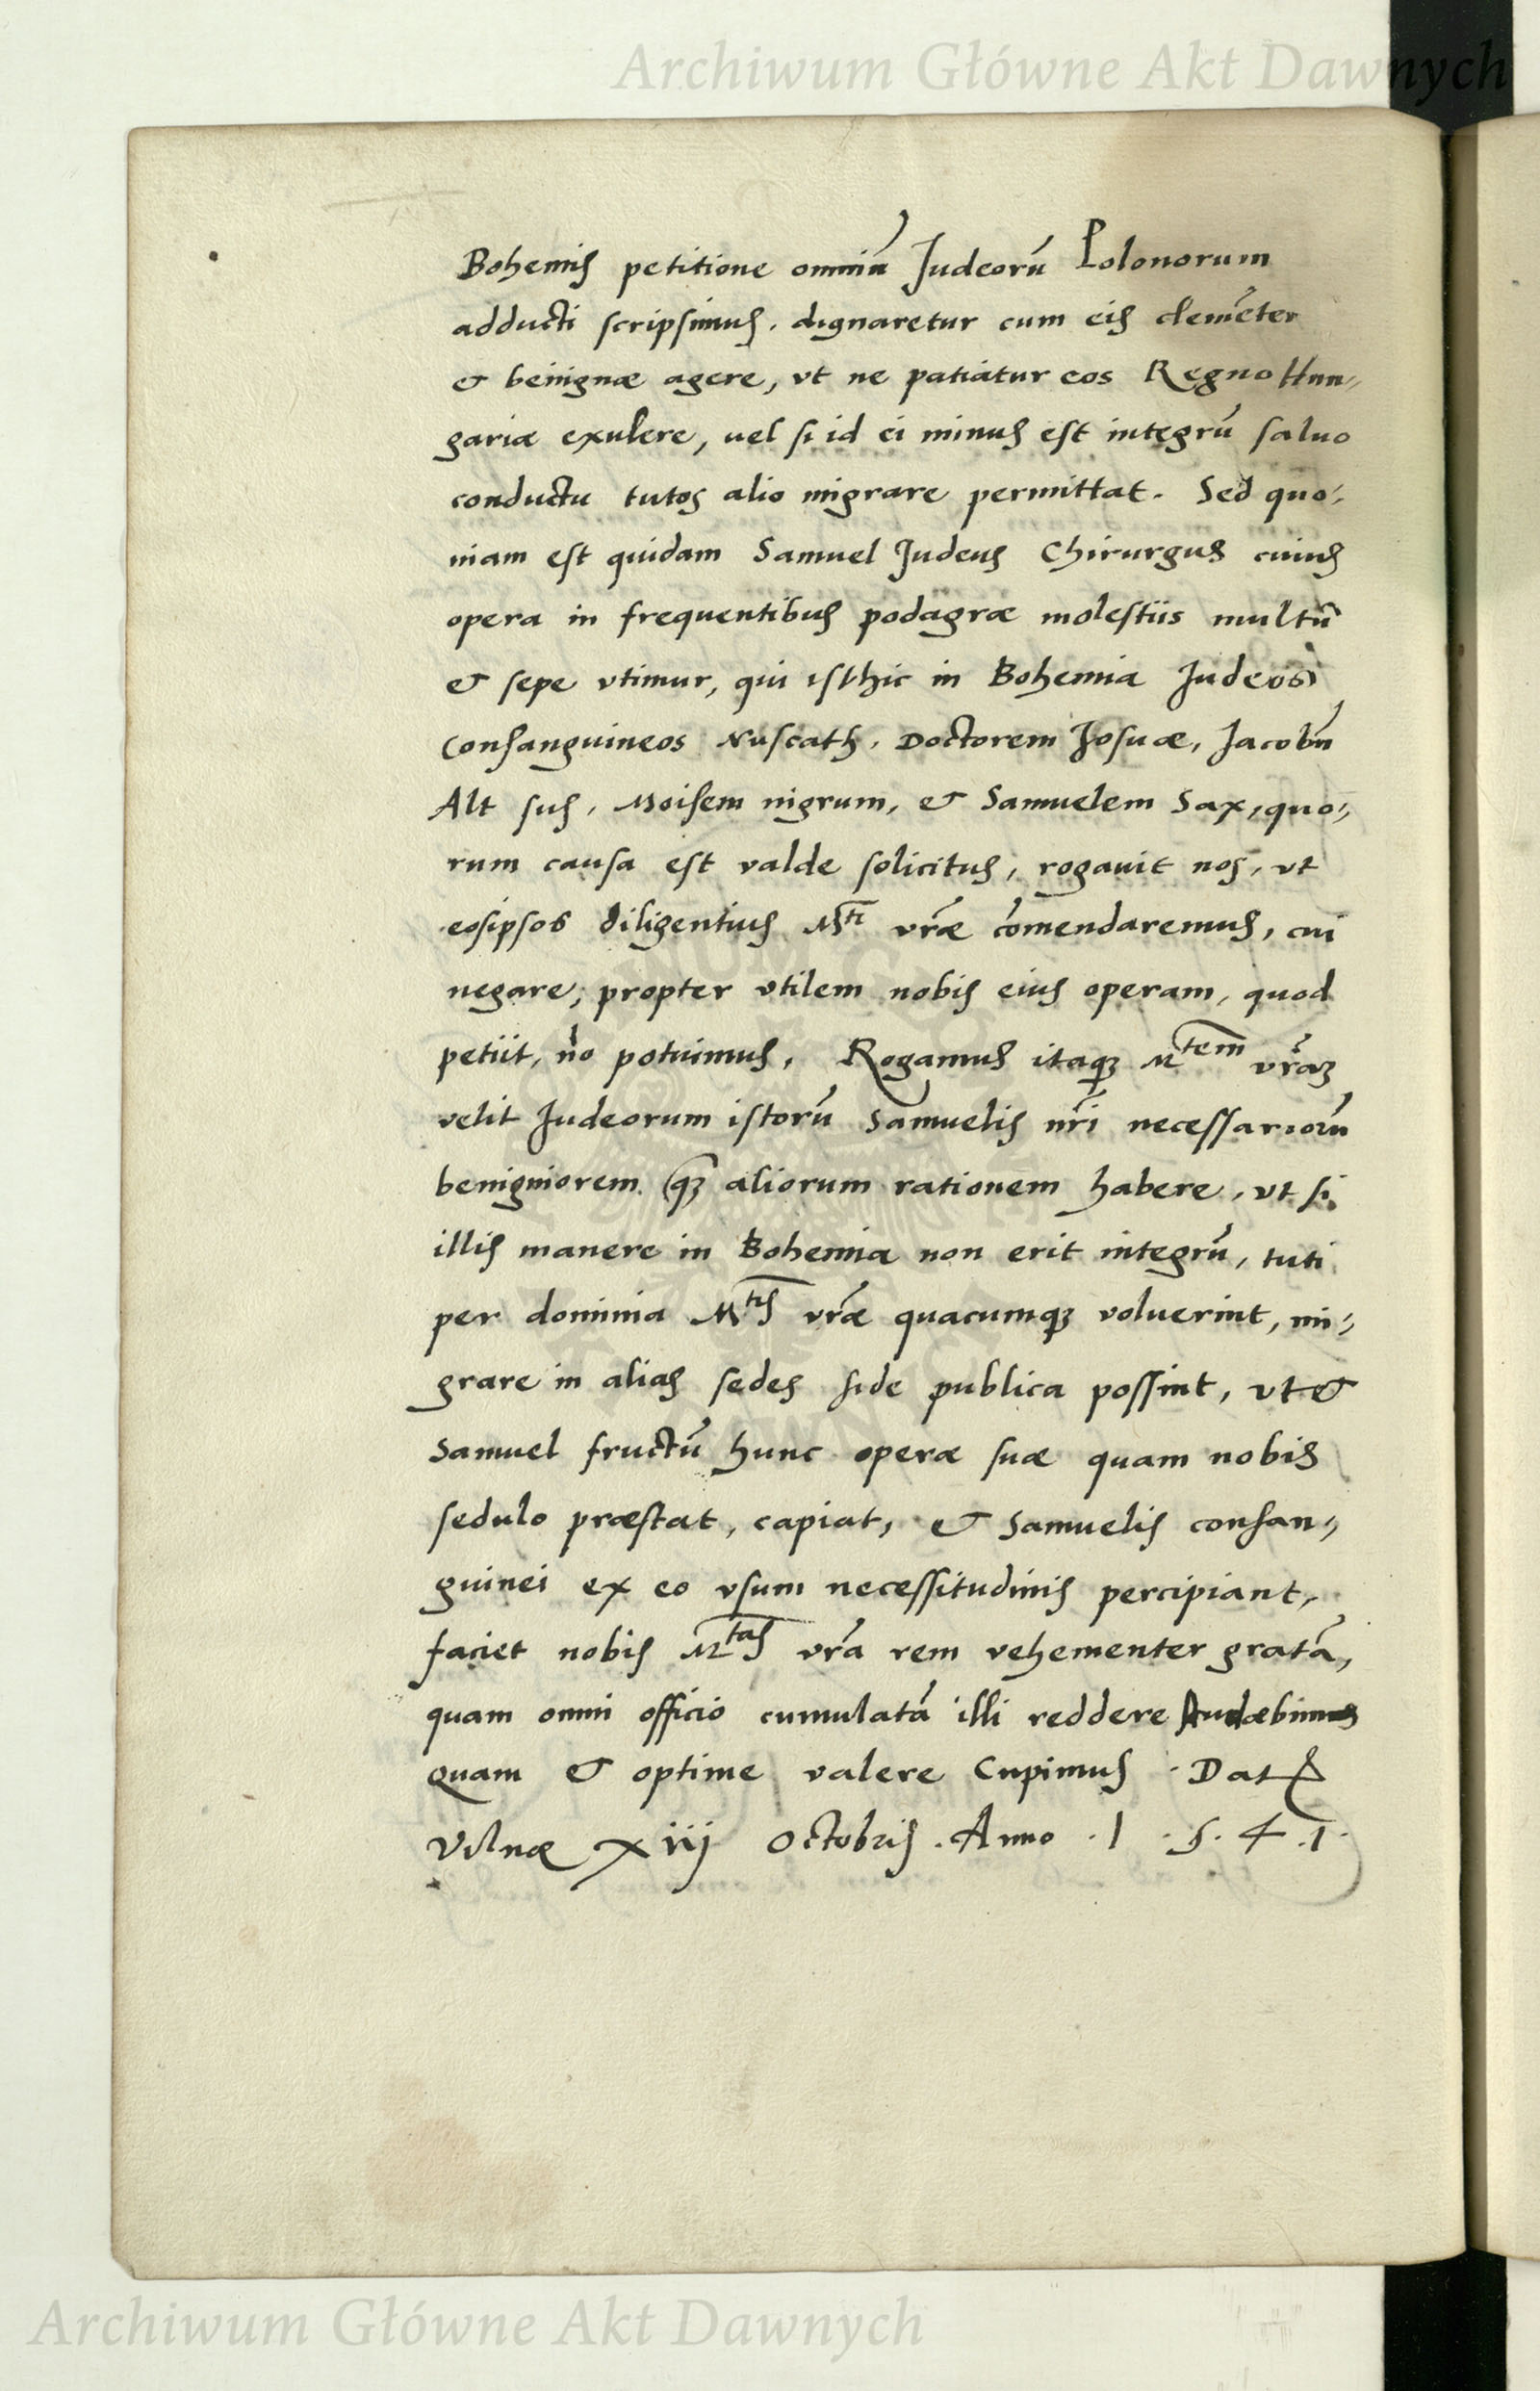 Archiwum Główne Akt Dawnych
Bohemis petitione omniū Judeorū Polonorum
adducti scripsimus, dignaretur cum eis clemēter
& benignæ agere, vt ne patiatur eos Regno Hun-
gariæ exulere, uel si id ei minus est integrū saluo
conductu tutos alio migrare permittat. Sed quo-
niam est quidam Samuel Judeus Chirurgus cuius
opera in frequentibus podagræ molestiis multū
& sepe vtimur, qui isthic in Bohemia Judeos
Consanguineos Nuscath, Doctorem Josuæ, Jacobū
Alt sus, Moisem nigrum, & Samuelem Sax, quo-
rum causa est valde solicitus, rogauit nos, vt
eosipsos diligentius Mti vræ cōmendaremus, cui
negare, propter vtilem nobis eius operam, quod
petiit, nō potuimus. Rogamus itaqꝫ Mtem vrāꝫ
velit Judeorum istorū Samuelis nrī necessariorū
benigniorem qꝫ aliorum rationem habere, vt si
illis manere in Bohemia non erit integrū, tuti
per dominia Mtis vræ quacumqꝫ voluerint, mi-
grare in alias sedes fide publica possint, vt &
Samuel fructū hunc operæ suæ quam nobis
sedulo præstat, capiat, & Samuelis consan-
guinei ex eo vsum necessitudinis percipiant,
faciet nobis Mtas vrā rem vehementer gratā,
quam omni officio cumulatā illi reddere studæbimus
quam & optime valere Cupimus. Dat
Vilnæ xiij Octobris. Anno .1.5.4.1.
Archiwum Główne Akt Dawnych